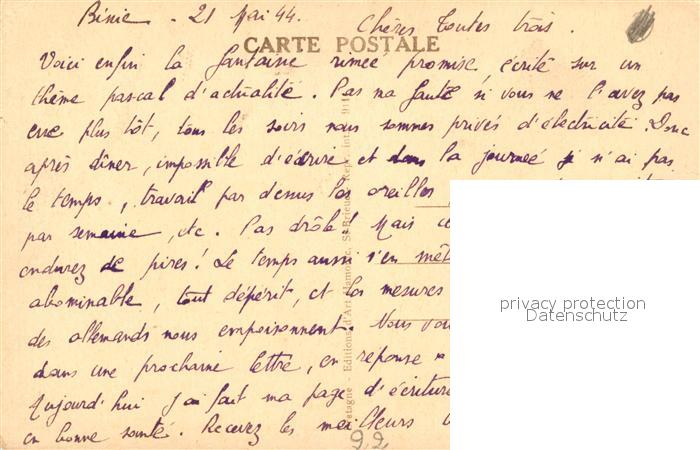 Binic - 21 Mai 44.
Chères toutes trois.
CARTE POSTALE
Voici enfin la fantaisie rimée promise, écrite sur un
thème pascal d'actualité. Pas ma faute si vous ne l'avez pas
eue plus tôt, tous les soirs nous sommes privés d'électricité. Donc
après dîner, impossible d'écrire et dans la journée je n'ai pas
le temps, travail par dessus les oreilles
par semaine, etc. Pas drôle! Mais
endurez de pires! Le temps aussi s'en mêl
abominable, tout dépérit, et les mesures
des allemands nous empoisonnent. Nous vou
dans une prochaine lettre, en réponse
Aujourd'hui j'ai fait ma page d'écriture
en bonne santé. Recevez les meilleurs
22
privacy protection
Datenschutz